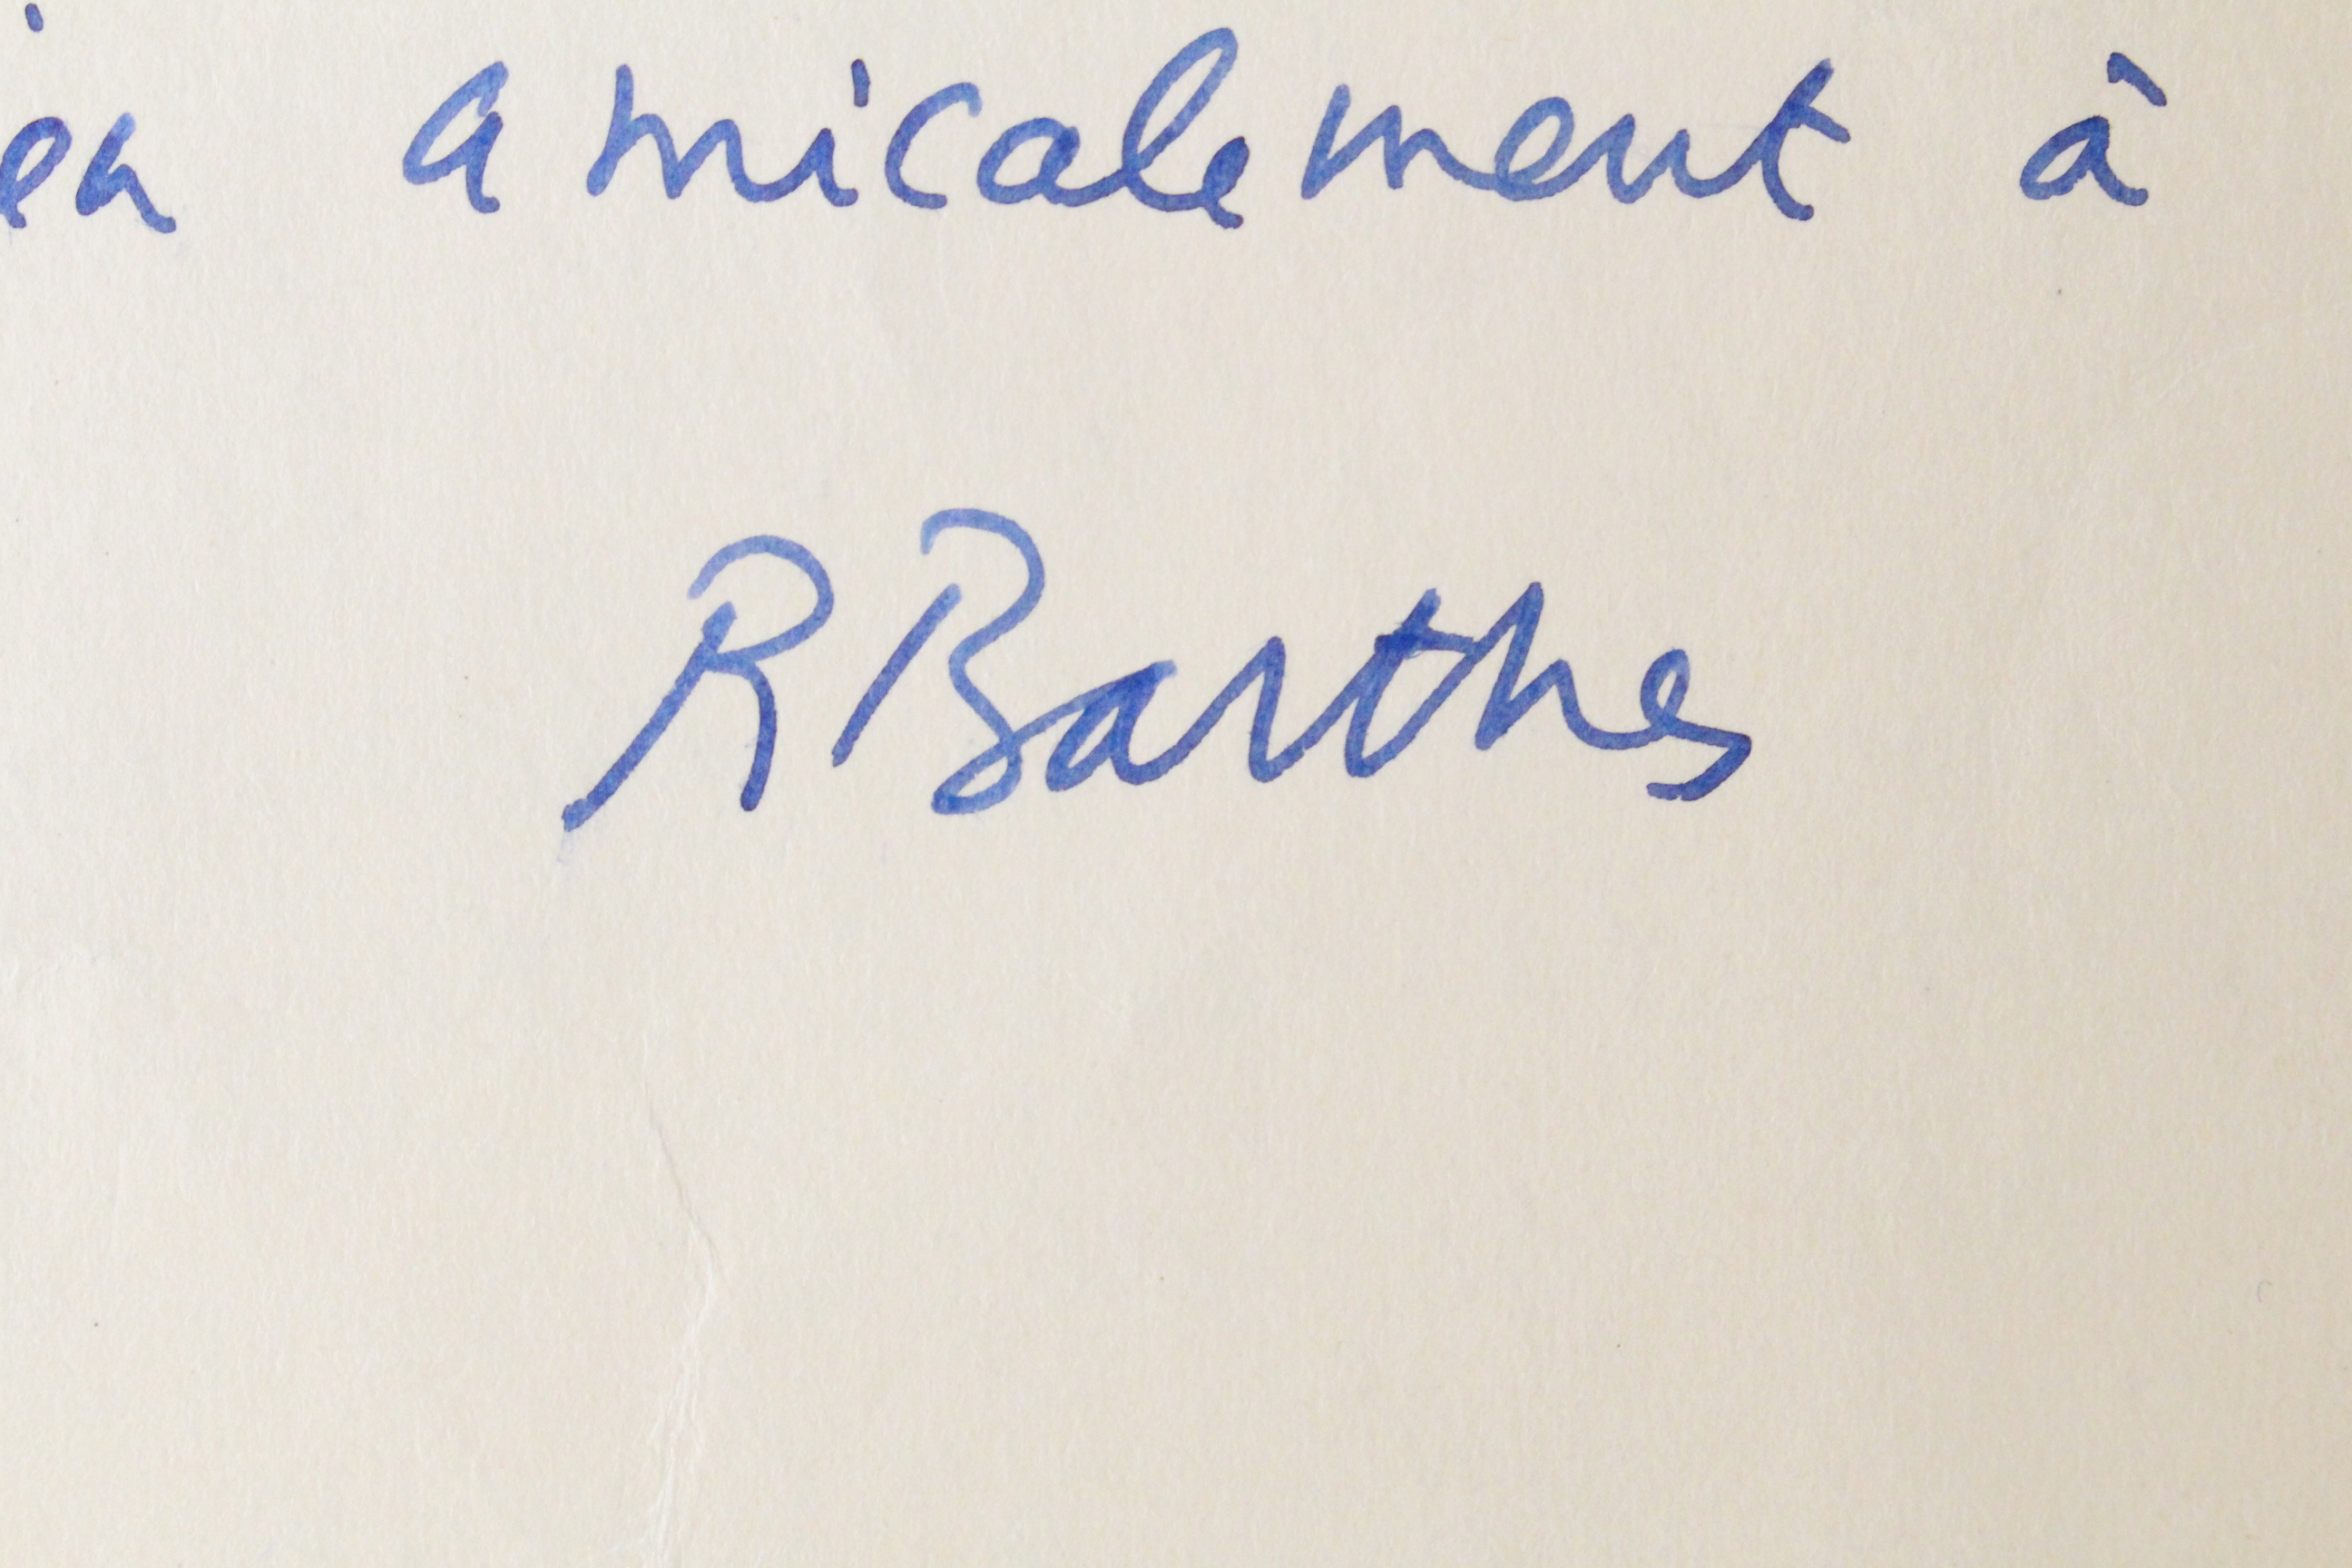 ien amicalement à
RBarthes